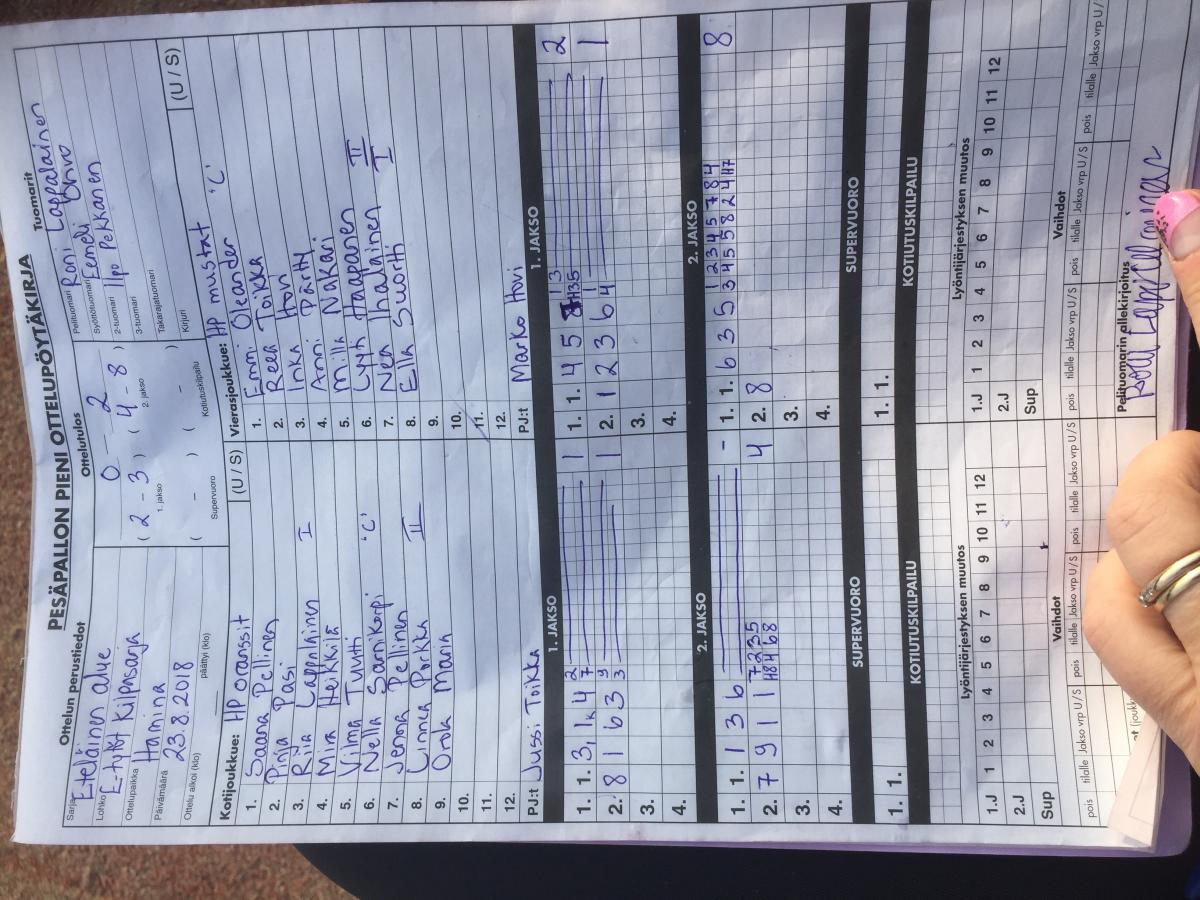 PESÄPALLON PIENI OTTELUPÖYTÄKIRJA
Ottelun perustiedot
Sarja Eteläinen alue
Lohko E-tytöt Kilpasarja
Ottelupaikka Hamina
Päivämäärä 23.8.2018
Ottelu alkoi (klo) päättyi (klo)
Ottelutulos
0 - 2
( 2 - 3 ) ( 4 - 8 )
1. jakso 2. jakso
( - ) ( - )
Supervuoro Kotiutuskilpailu
Tuomarit
Pelituomari Roni Lappalainen
Syöttötuomari Eemeli
2-tuomari Ilpo Pekkanen
3-tuomari
Takarajatuomari
Kirjuri (U / S)
Kotijoukkue: HP oranssit (U / S)
1. Saana Pellinen
2. Pinja Pasi
3. Riia Lappalainen I
4. Mira Heikkilä
5. Vilma Tuuth 'C'
6. Nella Sarnikorpi
7. Jenna Pellinen II
8. Linnea Porkka
9. Onla Marin
10.
11.
12.
PJ:t Jussi Toikka
Vierasjoukkue: HP mustat 'C'
1. Emmi Oleander
2. Reea Toikka
3. Inka Hovi
4. Anni Pärty
5. Milla Nakari
6. Lyyti Haapanen II
7. Nea Ihalainen I
8. Ella Suortti
9.
10.
11.
12.
PJ:t Marko Hovi
1. JAKSO
1. 1. 3 1 4 2 7 1
2. 8 1 6 3 9 3 1
3.
4.
1. JAKSO
1. 1. 4 5 2
2. 1 2 3 6 4 1 1
3.
4.
2. JAKSO
1. 1. 1 3 6 -
2. 7 9 1 1 7 2 3 5 4
3.
4.
2. JAKSO
1. 1. 6 3 5 1 2 3 4 5 7 8 4 8
2. 8
3.
4.
SUPERVUORO
1. 1.
SUPERVUORO
1. 1.
KOTIUTUSKILPAILU
KOTIUTUSKILPAILU
Lyöntijärjestyksen muutos
1.J 1 2 3 4 5 6 7 8 9 10 11 12
2.J
Sup
Lyöntijärjestyksen muutos
1.J 1 2 3 4 5 6 7 8 9 10 11 12
2.J
Sup
Vaihdot
pois tilalle Jakso vrp U / S pois tilalle Jakso vrp U / S pois tilalle Jakso vrp U / S
Vaihdot
pois tilalle Jakso vrp U / S pois tilalle Jakso vrp U / S pois tilalle Jakso vrp U / S
Pelituomarin allekirjoitus
Roni Lappalainen